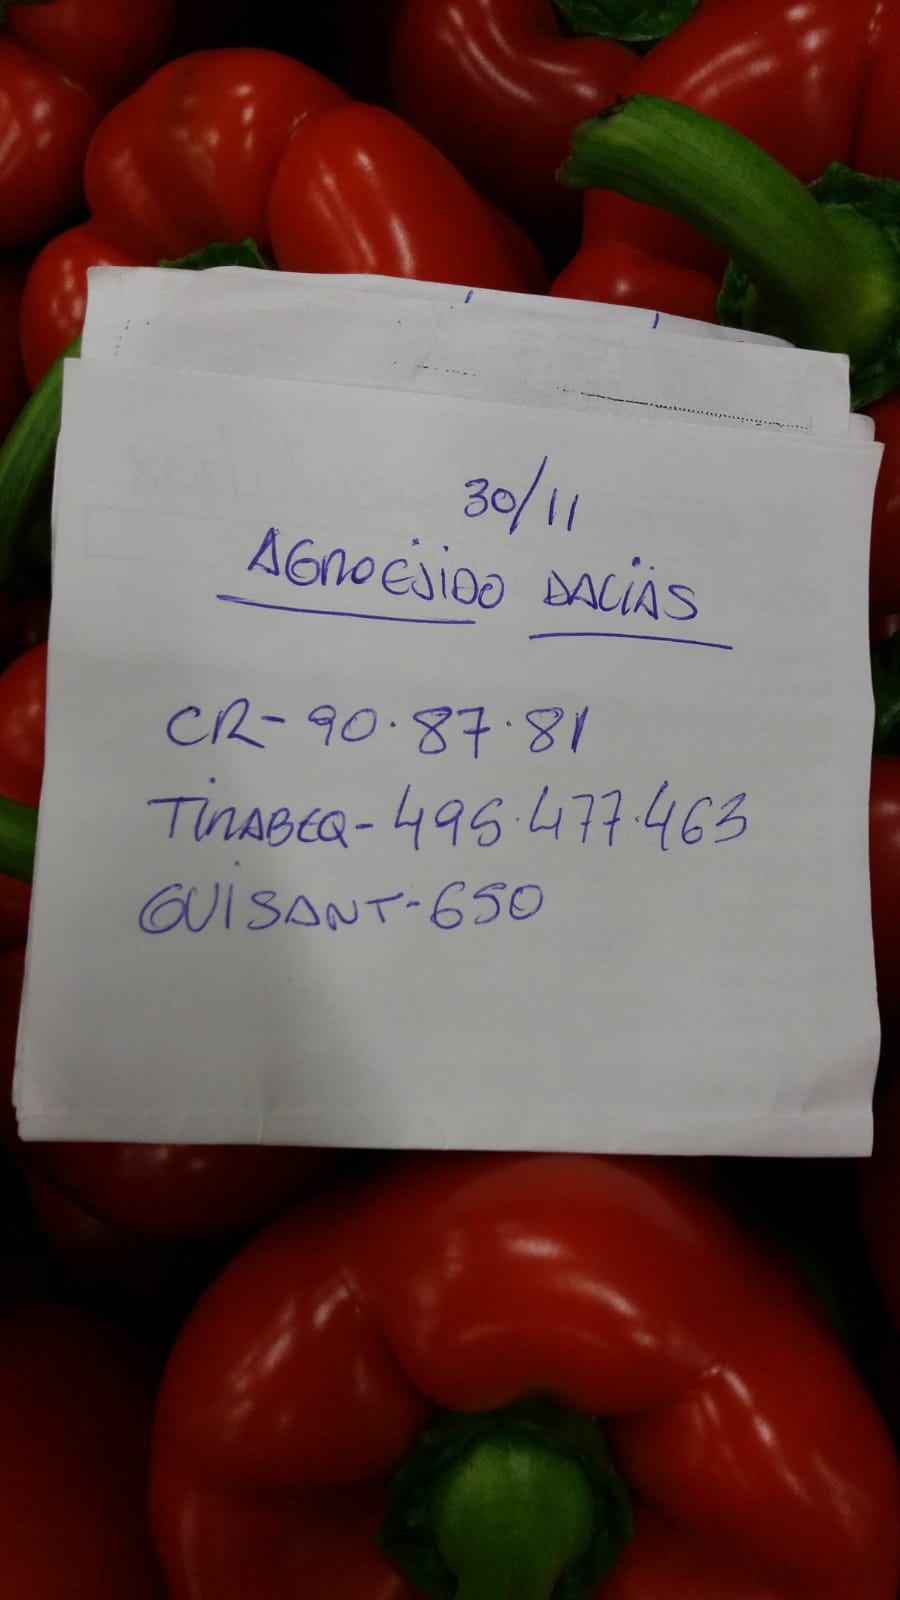 30/11
AGROEJIDO DALIAS
CR- 90.87.81
TIRABEQ- 495.477.463
GUISANT- 650